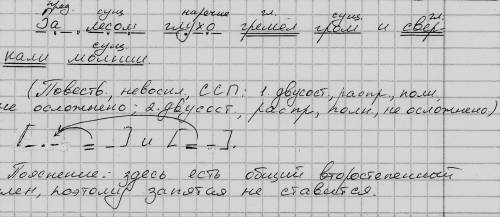 пред. сущ. наречие гл. сущ. гл.
За лесом глухо гремел гром и свер-
сущ.
кали молнии.
(Повеств., невоскл., ССП: 1. двусост., распр., полн.,
не осложнено; 2. двусост., распр., полн., не осложнено)
[ ] и [ ].
Пояснение: здесь есть общий второстепенный
лен, поэтому запятая не ставится.